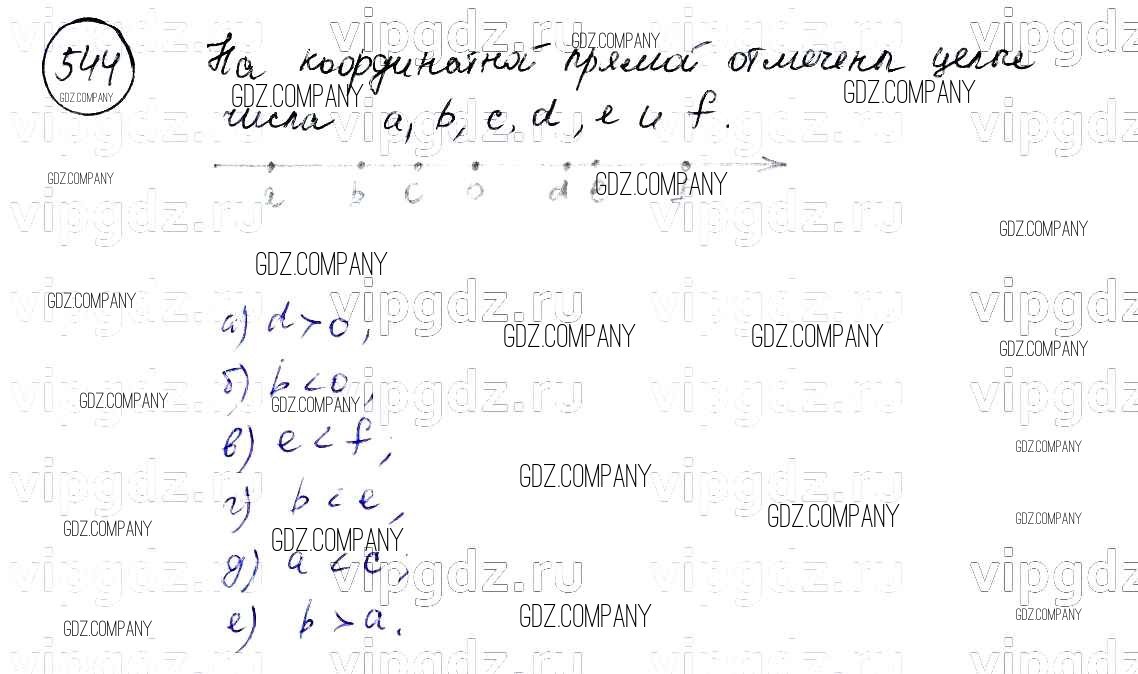 544
На координатной прямой отмечены целые
числа a, b, c, d, e и f.
a b c 0 d e f
а) d > 0;
б) b < 0,
в) e < f;
г) b < e,
д) a < c;
е) b > a.
GDZ.COMPANY
vipgdz.ru